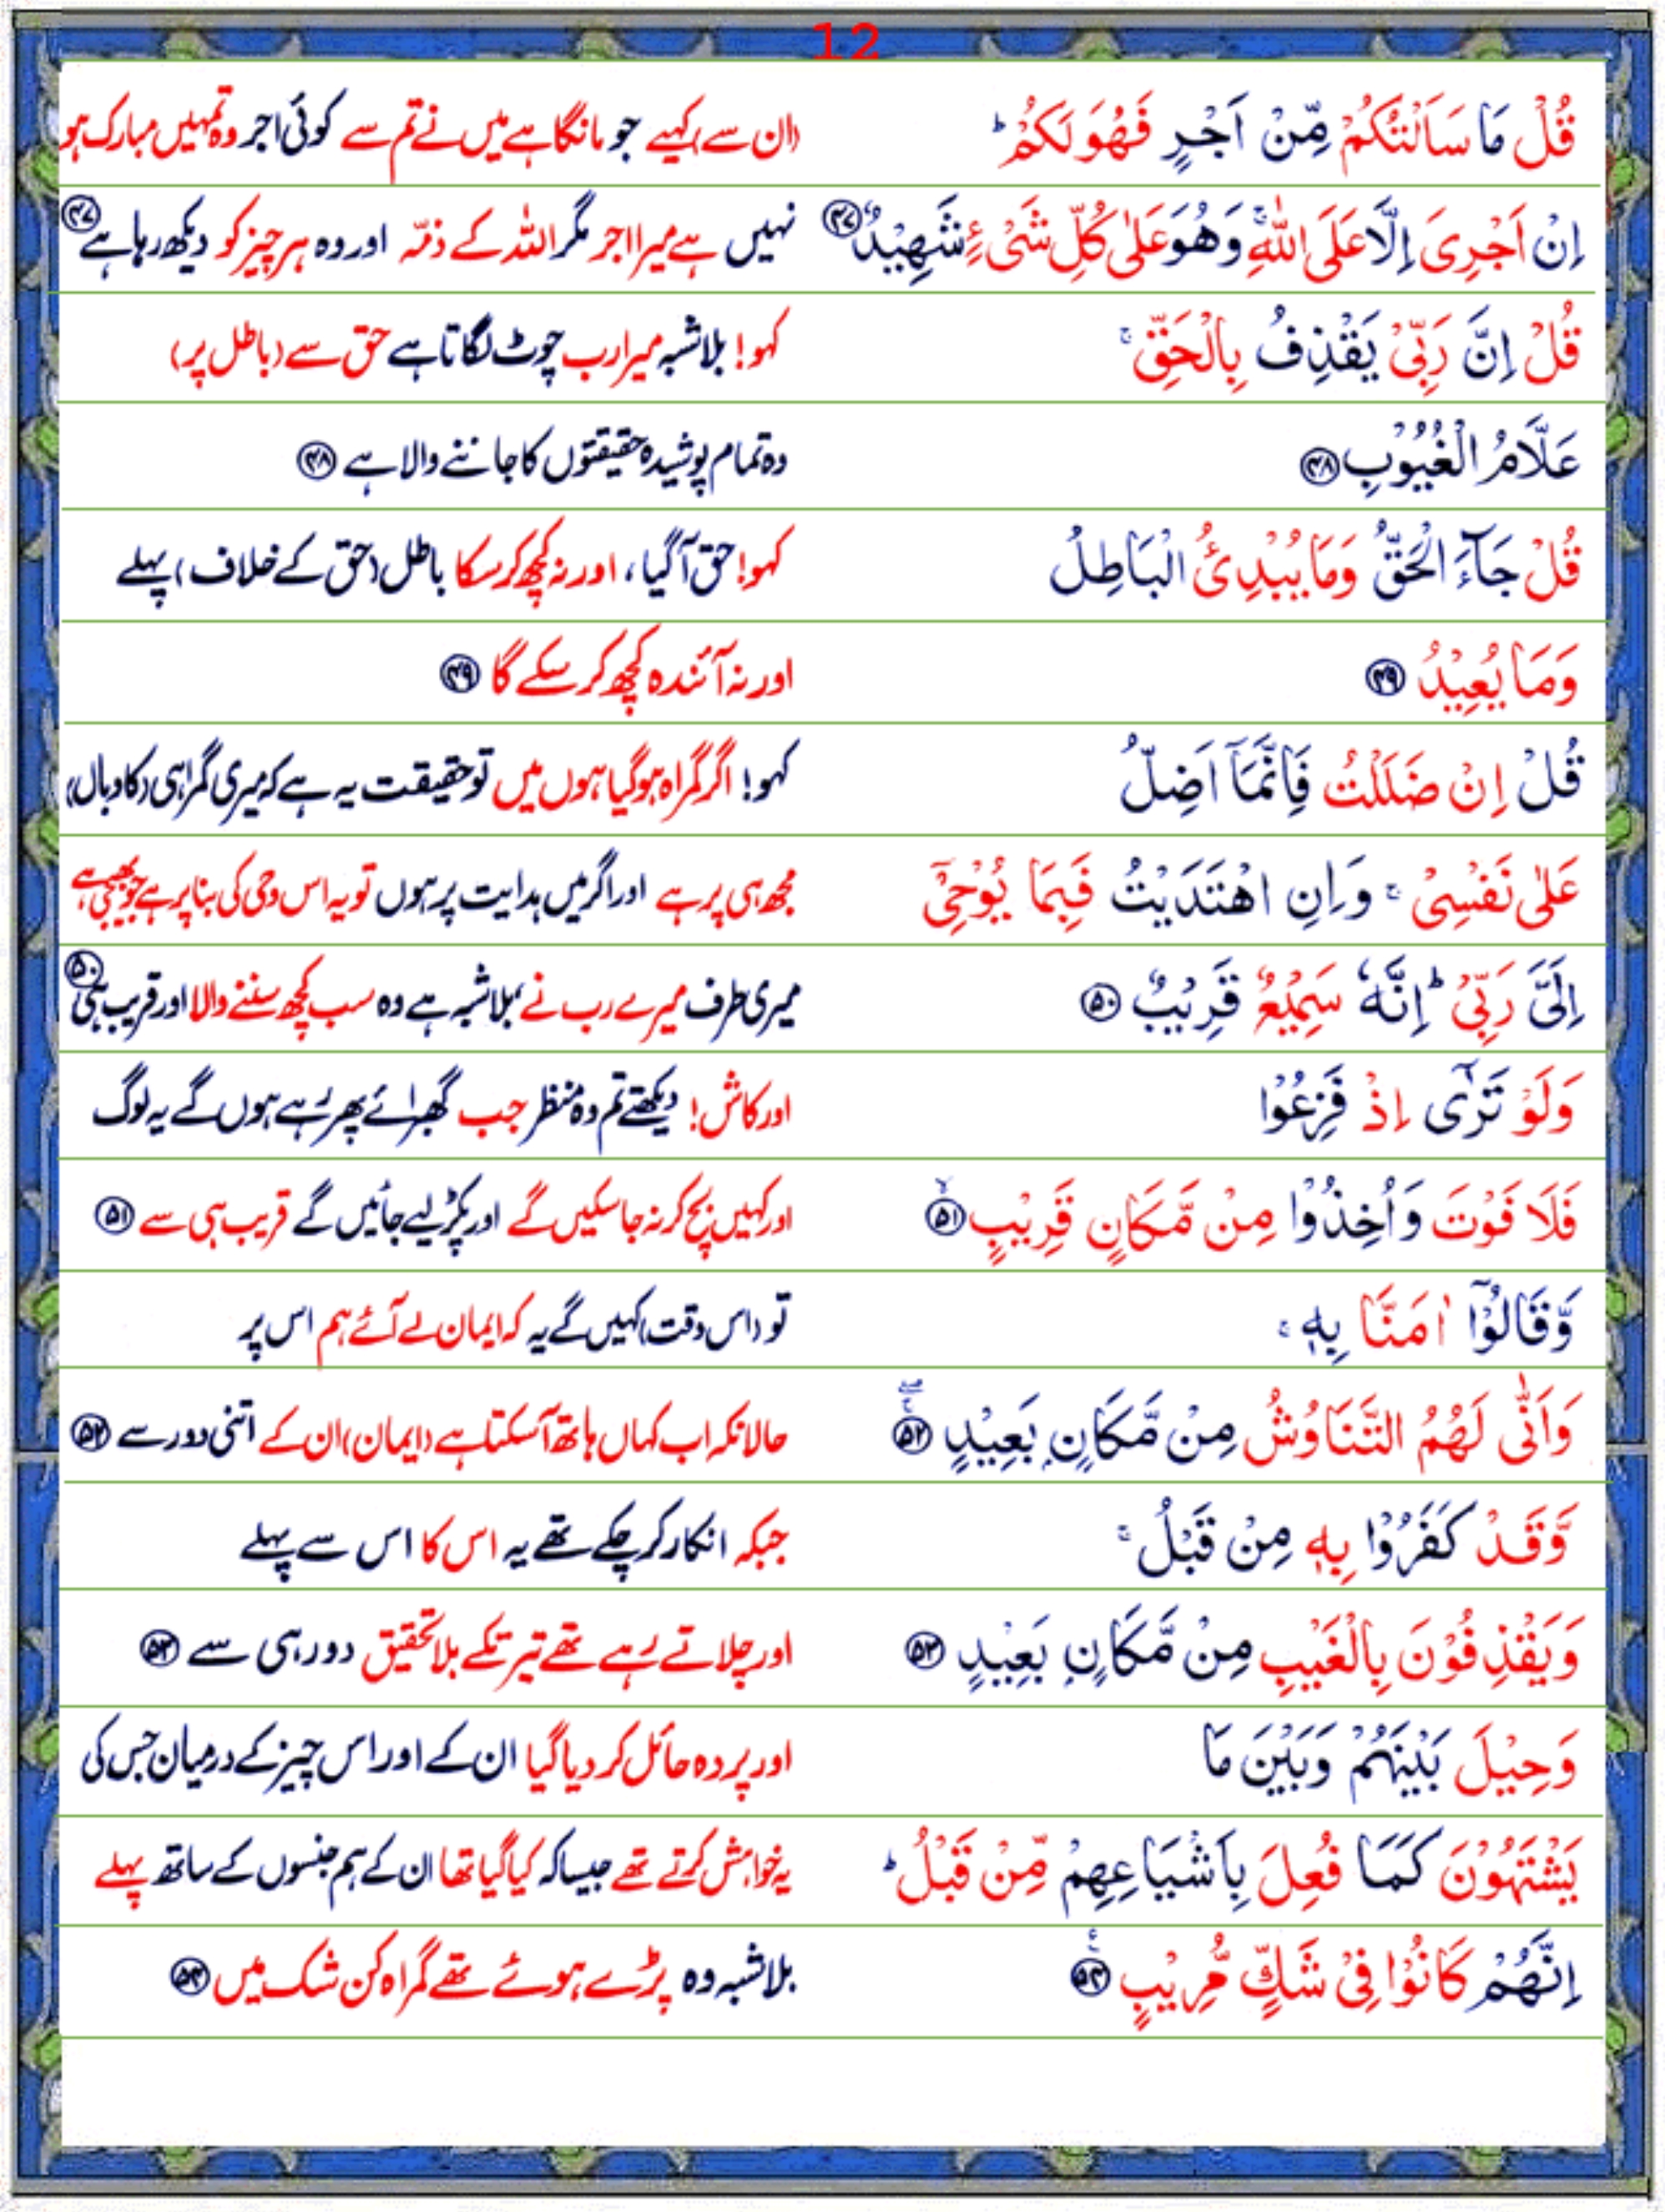 12
قُلْ مَا سَاَلْتُكُمْ مِّنْ اَجْرٍ فَهُوَ لَكُمْ ؕ (ان سے) کہیے جو مانگا ہے میں نے تم سے کوئی اجر وہ تمہیں مبارک ہو
اِنْ اَجْرِیَ اِلَّا عَلَی اللّٰهِ ۚ وَهُوَ عَلٰی كُلِّ شَیْءٍ شَهِیْدٌ ۴۷ نہیں ہے میرا اجر مگر اللہ کے ذمّہ اور وہ ہر چیز کو دیکھ رہا ہے ۴۷
قُلْ اِنَّ رَبِّیْ یَقْذِفُ بِالْحَقِّ ۚ کہو! بلاشبہ میرا رب چوٹ لگاتا ہے حق سے (باطل پر)
عَلَّامُ الْغُیُوْبِ ۴۸ وہ تمام پوشیدہ حقیقتوں کا جاننے والا ہے ۴۸
قُلْ جَآءَ الْحَقُّ وَمَا یُبْدِئُ الْبَاطِلُ کہو! حق آگیا، اور نہ کچھ کرسکا باطل (حق کے خلاف) پہلے
وَمَا یُعِیْدُ ۴۹ اور نہ آئندہ کچھ کرسکے گا ۴۹
قُلْ اِنْ ضَلَلْتُ فَاِنَّمَاۤ اَضِلُّ کہو! اگر گمراہ ہوگیا ہوں میں تو حقیقت یہ ہے کہ میری گمراہی (کا وبال)
عَلٰی نَفْسِیْ ۚ وَاِنِ اهْتَدَیْتُ فَبِمَا یُوْحِیْۤ مجھ ہی پر ہے اور اگر میں ہدایت پر ہوں تو یہ اس وحی کی بنا پر ہے جو بھیجی ہے
اِلَیَّ رَبِّیْ ؕ اِنَّهٗ سَمِیْعٌ قَرِیْبٌ ۵۰ میری طرف میرے رب نے، بلاشبہ ہے وہ سب کچھ سننے والا اور قریب بھی ۵۰
وَلَوْ تَرٰۤی اِذْ فَزِعُوْا اور کاش! دیکھتے تم وہ منظر جب گھبرائے پھر رہے ہوں گے یہ لوگ
فَلَا فَوْتَ وَاُخِذُوْا مِنْ مَّكَانٍ قَرِیْبٍ ۵۱ اور کہیں بچ کر نہ جاسکیں گے اور پکڑ لیے جائیں گے قریب ہی سے ۵۱
وَّقَالُوْۤا اٰمَنَّا بِهٖ ۚ تو (اس وقت) کہیں گے یہ کہ ایمان لے آئے ہم اس پر
وَاَنّٰی لَهُمُ التَّنَاوُشُ مِنْ مَّكَانٍۭ بَعِیْدٍ ۵۲ حالانکہ اب کہاں ہاتھ آسکتا ہے (ایمان) ان کے اتنی دور سے ۵۲
وَّقَدْ كَفَرُوْا بِهٖ مِنْ قَبْلُ ۚ جبکہ انکار کرچکے تھے یہ اس کا اس سے پہلے
وَیَقْذِفُوْنَ بِالْغَیْبِ مِنْ مَّكَانٍۭ بَعِیْدٍ ۵۳ اور چلاتے رہے تھے تیر تکے بلاتحقیق دور ہی سے ۵۳
وَحِیْلَ بَیْنَهُمْ وَبَیْنَ مَا اور پردہ حائل کردیا گیا ان کے اور اس چیز کے درمیان جس کی
یَشْتَهُوْنَ كَمَا فُعِلَ بِاَشْیَاعِهِمْ مِّنْ قَبْلُ ؕ یہ خواہش کرتے تھے جیسا کہ کیا گیا تھا ان کے ہم جنسوں کے ساتھ پہلے
اِنَّهُمْ كَانُوْا فِیْ شَكٍّ مُّرِیْبٍ ۵۴ بلاشبہ وہ پڑے ہوئے تھے گمراہ کن شک میں ۵۴